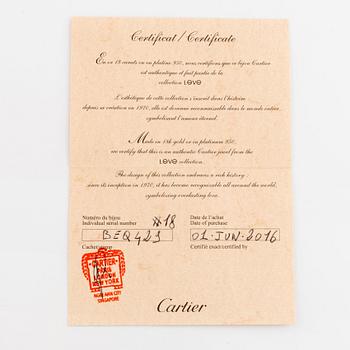 Certificat / Certificate
En or 18 carats ou en platine 950, nous certifions que ce bijou Cartier
est authentique et fait partie de la
collection LOVE
L'esthétique de cette collection s'inscrit dans l'histoire
depuis sa création en 1970, elle est devenue reconnaissable dans le monde entier,
symbolisant l'amour éternel.
Made in 18k gold or in platinum 950,
we certify that this is an authentic Cartier jewel from the
LOVE collection.
The design of this collection embraces a rich history
since its inception in 1970, it has become recognizable all around the world,
symbolizing everlasting love.
Numéro du bijou
Individual serial number #18
BEQ423
Date de l'achat
Date of purchase
01.JUN.2016
Cachet
Certifié exact/certified by
CARTIER
PARIS
LONDON
NEW YORK
NGEE ANN CITY
SINGAPORE
Cartier